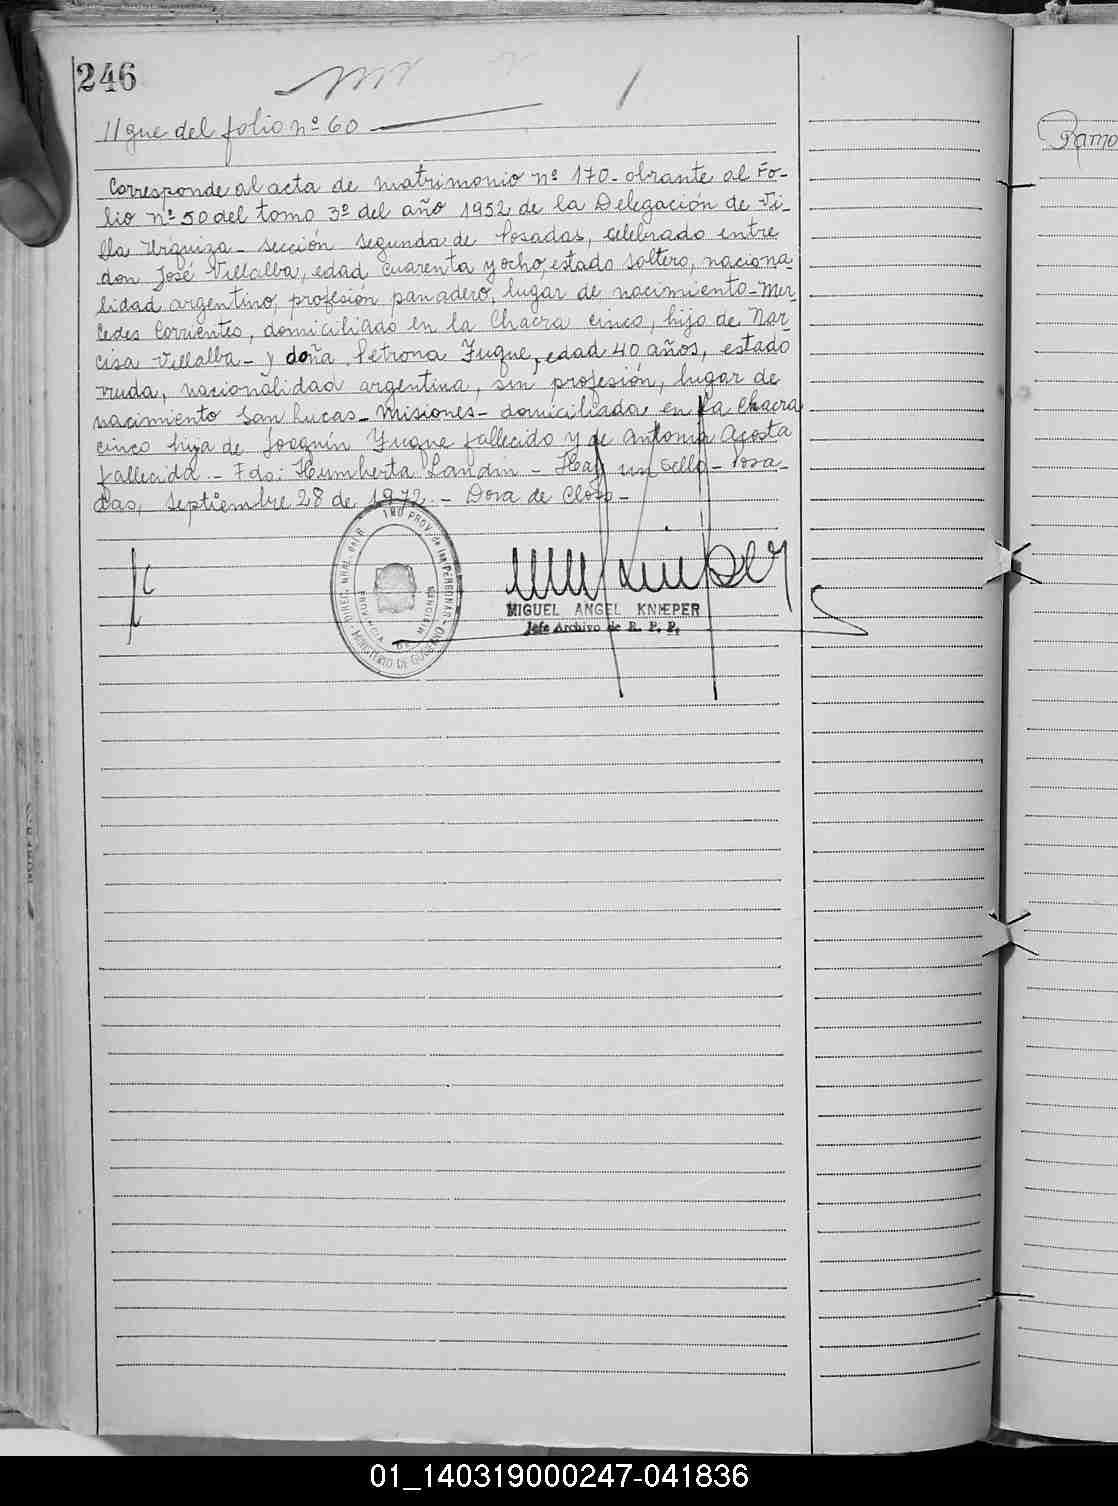 246
//gue del folio nº 60
Corresponde al acta de matrimonio nº 170- obrante al Fo-
lio nº 50 del tomo 3º del año 1952 de la Delegación de Vi-
lla Urquiza - sección segunda de Posadas, celebrado entre
don José Villalba, edad cuarenta y ocho, estado soltero, naciona-
lidad argentino, profesión panadero, lugar de nacimiento - Mer-
cedes Corrientes, domiciliado en la Chacra cinco, hijo de Nar-
cisa Villalba - y doña Petrona Fuque, edad 40 años, estado
viuda, nacionalidad argentina, sin profesión, lugar de
nacimiento San Lucas - Misiones - domiciliada en la Chacra
cinco hija de Joaquín Fuque fallecido y de Antonia Acosta
fallecida. - Fdo: Humberta Landin - Hay un sello - Posa-
das, septiembre 28 de 1972. - Dora de Closs -
MIGUEL ANGEL KNIEPER
Jefe Archivo de R. P. P.
MINISTERIO DE GOBIERNO
PROVINCIA DE
Ramo
01_140319000247-041836